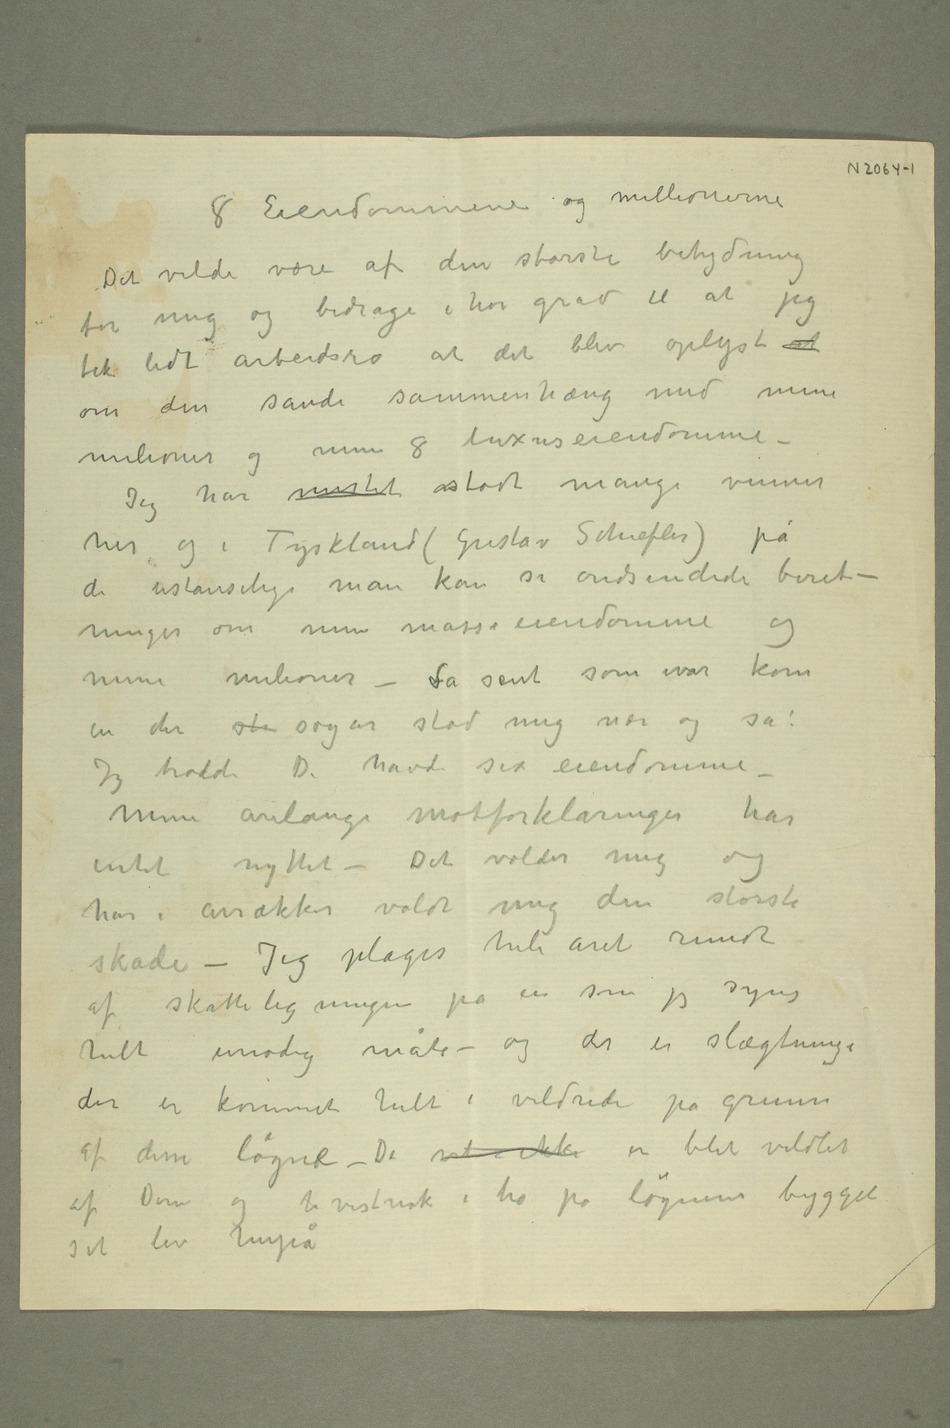 N 2064-1
8 Eiendommene og millionerne
Det vilde være af den største betydning
for mig og bidrage i høi grad til at jeg
fik lidt arbeidsro at det blev oplyst at
om den sande sammenhæng med mine
milioner og mine 8 luxuseiendomme –
Jeg har mistet stødt mange venner
her og i Tyskland (Gustav Schiefler) på
de ustanselige man kan si ondsindede beret–
ninger om mine masseeiendomme og
mine milioner – Så sent som ivår kom
en der sto sogar stod mig nær og sa!
Jeg trodde De havde sex eiendomme –
Mine årelange motforklaringer har
intet nyttet – Det volder mig og
har i årrækker voldt mig den største
skade – Jeg plages hele året rundt
af skatteligningen på en som jeg synes
helt unødig måte – og der er slægtninge
der er kommet helt i vildrede på grunn
af disse løgne – De vet ikke er blet vildlet
af Dem og til vistnok i tro på løgnene bygget
sit liv herpå